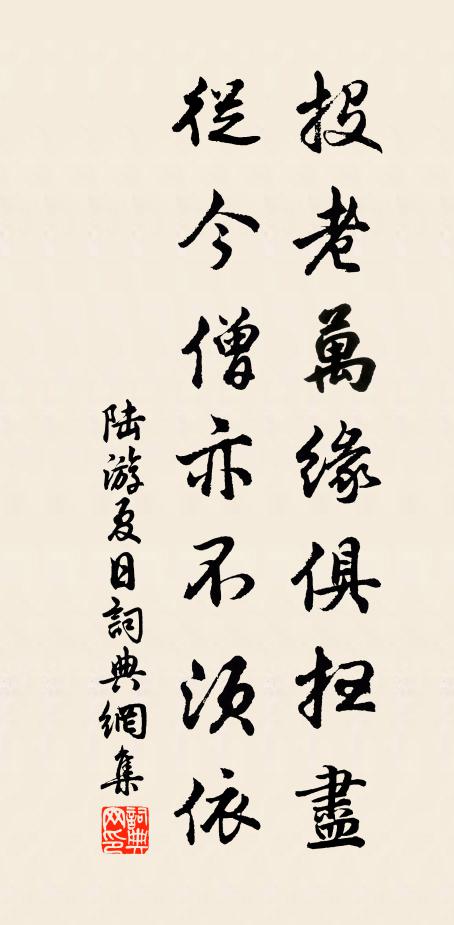 投老萬緣俱掃盡
從今僧亦不須依
陸游夏日詞典網集
詞典网印